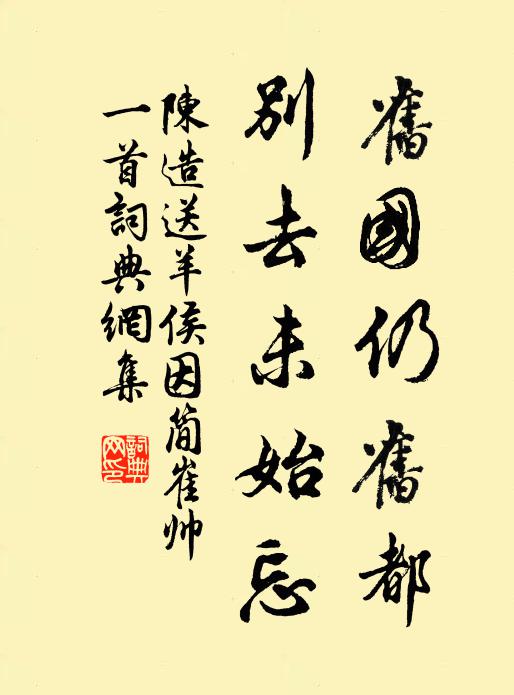 舊國仍舊都
別去未始忘
陳造送羊侯因簡崔帅
一首詞典網集
詞典
网印